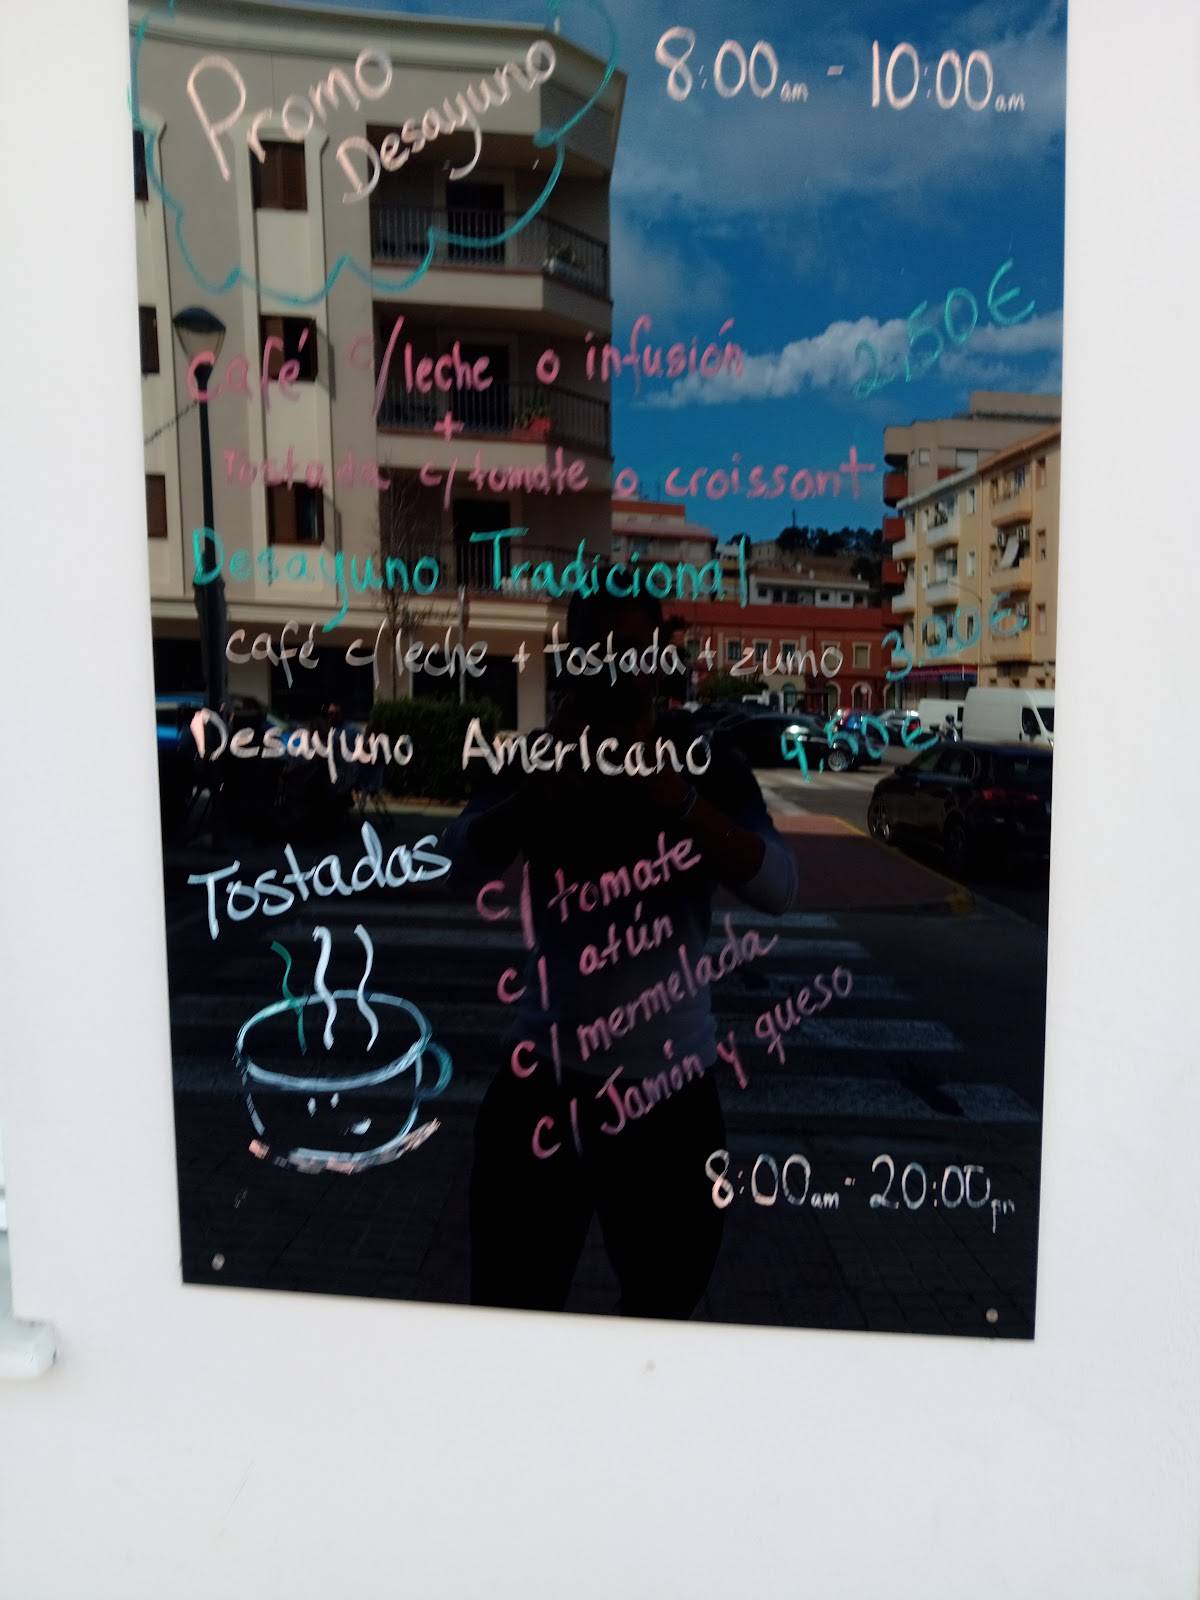 Promo
Desayuno
8:00am - 10:00am
Café c/leche o infusión 2,50€
+
Tostada c/tomate o croissant
Desayuno Tradicional
café c/leche + tostada + zumo 3.20€
Desayuno Americano 9,50€
Tostadas
c/ tomate
c/ atún
c/ mermelada
c/ Jamón y queso
8:00am - 20:00pm